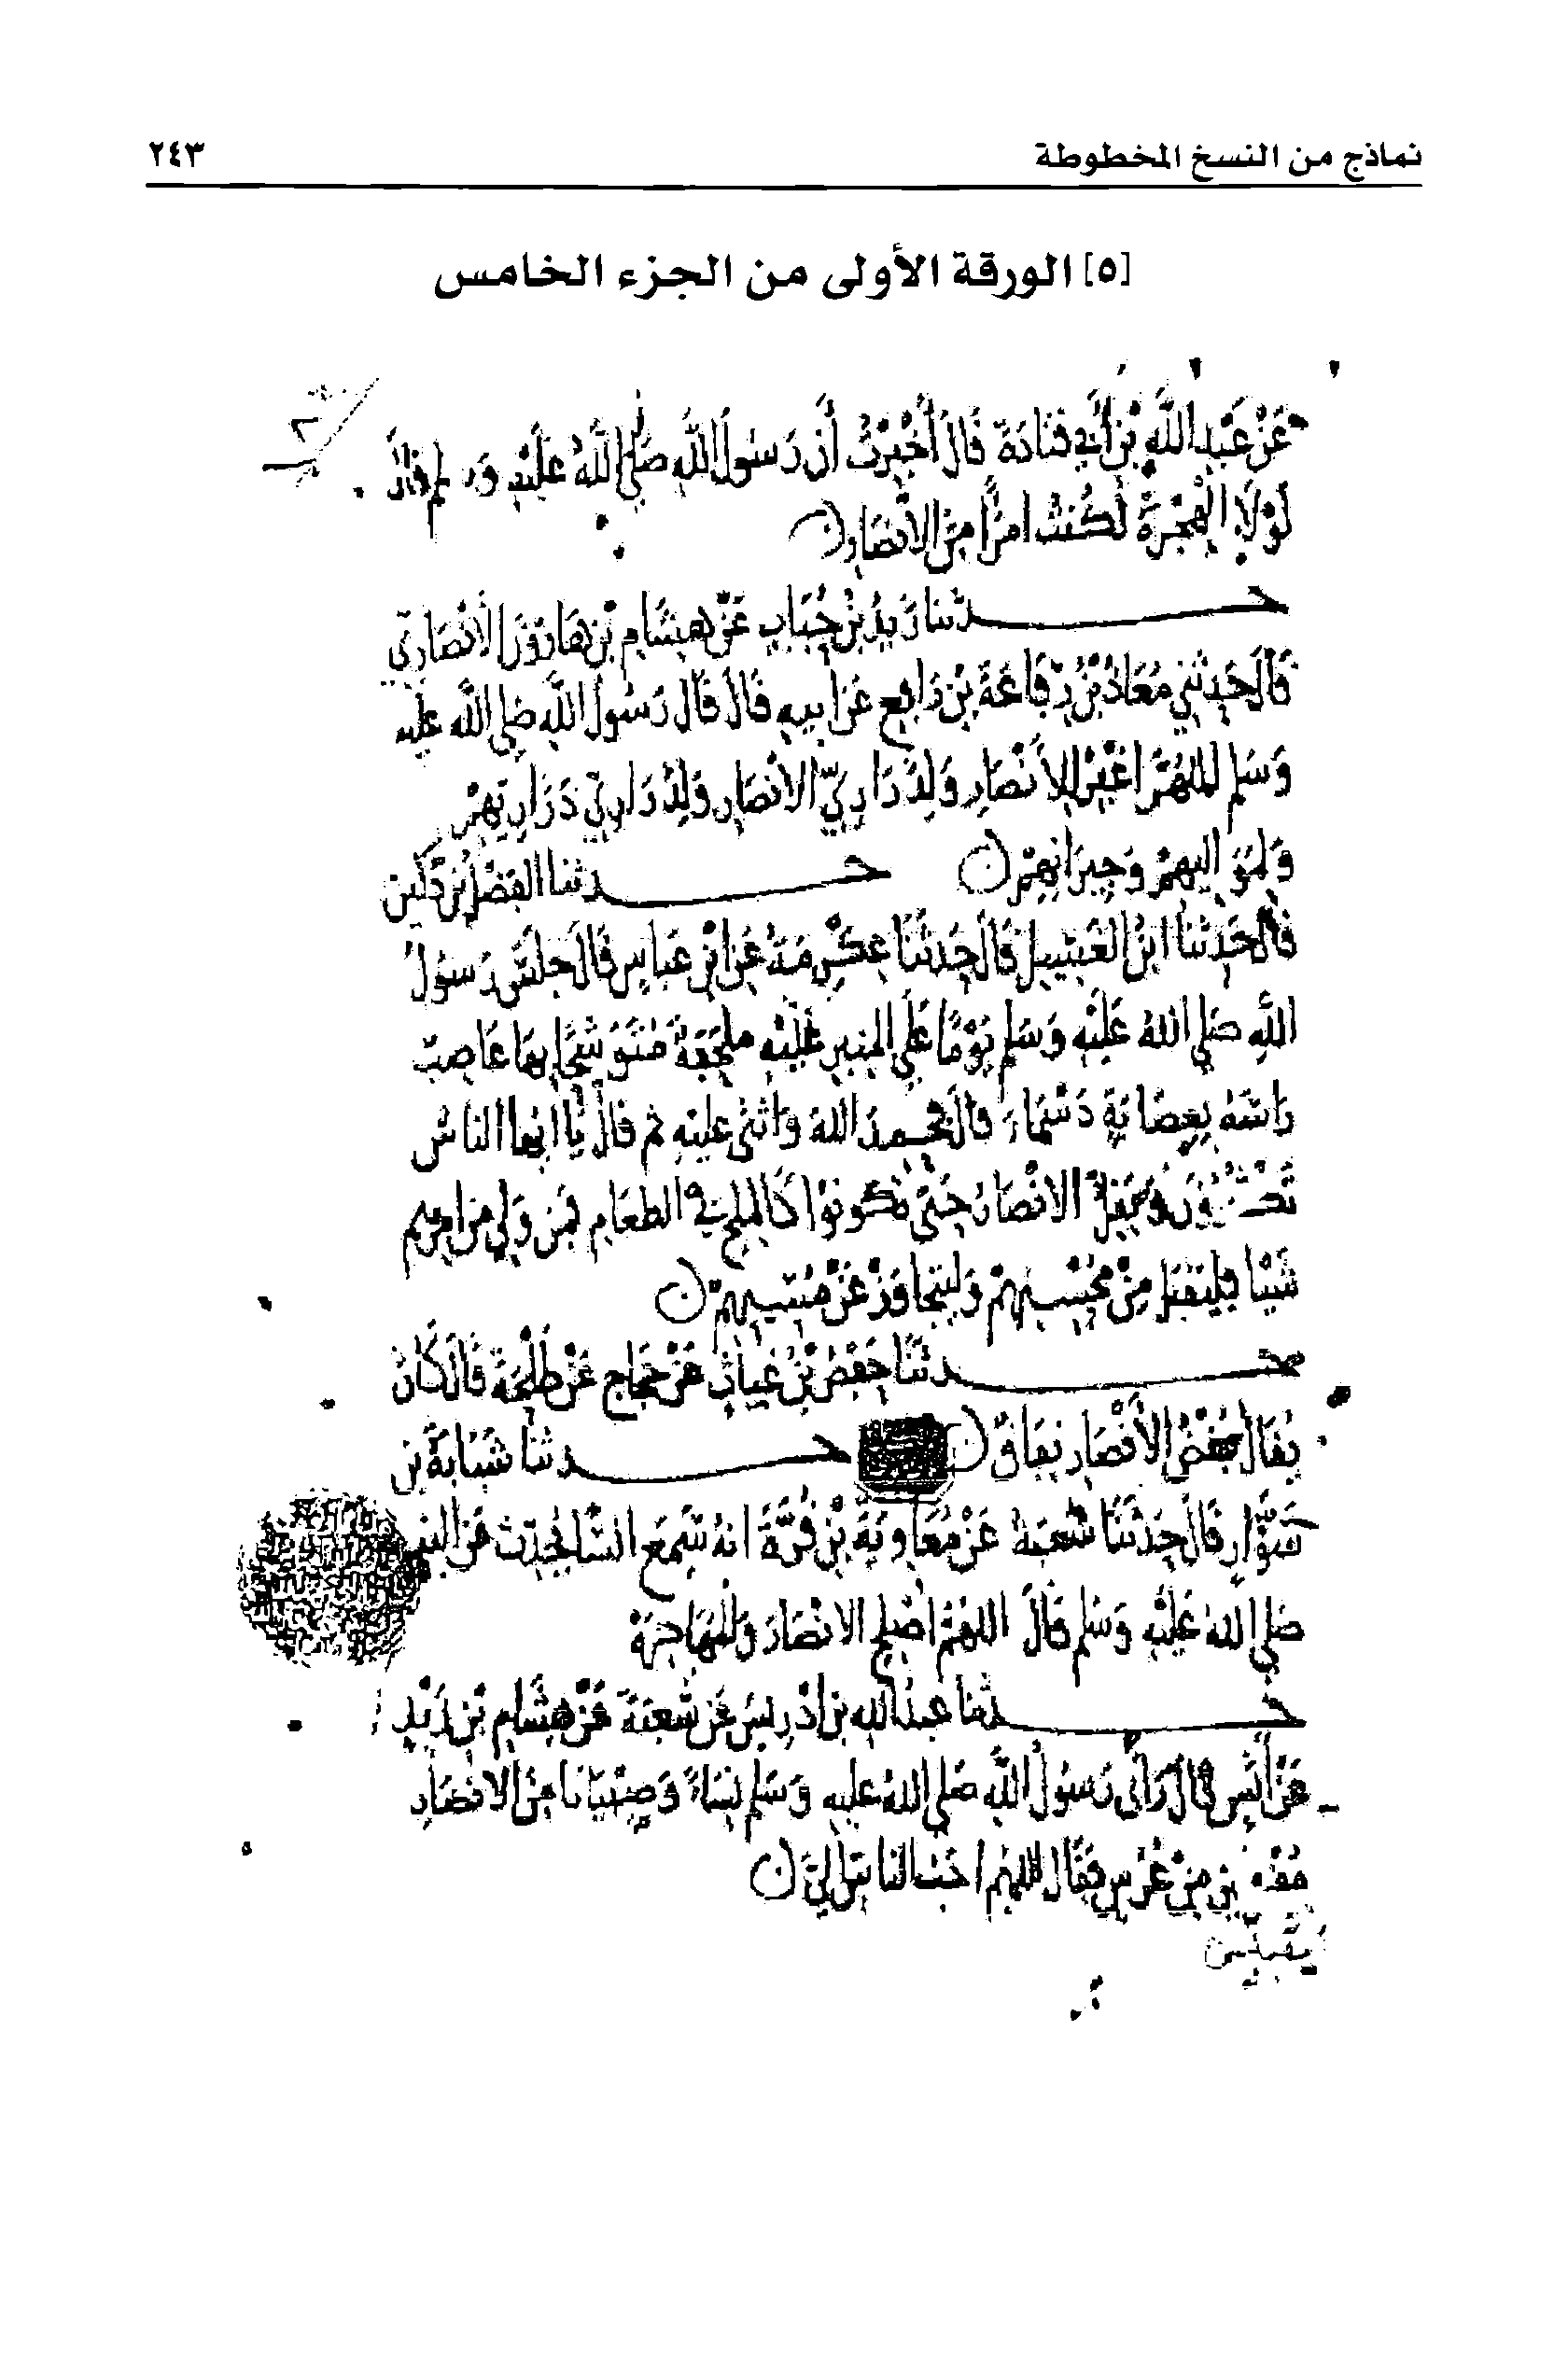 نماذج من النسخ المخطوطة ٢٤٣
[٥] الورقة الأولى من الجزء الخامس
عن عبد الله بن أبي قتادة قال أخبرت أن رسول الله صلى الله عليه وسلم قال
لولا الهجرة لكنت امرأ من الأنصار
حدثنا زيد بن حباب عن هشام بن هارون الأنصاري
قال حدثني معاذ بن رفاعة بن رافع عن أبيه قال قال رسول الله صلى الله عليه
وسلم اللهم اغفر للأنصار ولذراري الأنصار ولذراري ذراريهم
ولمواليهم وجيرانهم حدثنا الفضل بن دكين
قال حدثنا ابن الغسيل قال حدثنا عكرمة عن ابن عباس قال جلس رسول
الله صلى الله عليه وسلم يوما على المنبر عليه ملحفة متوشحا بها عاصب
رأسه بعصابة دسماء قال فحمد الله واثنى عليه ثم قال يا ايها الناس
تكثرون ويقل الانصار حتى تكونوا كالملح في الطعام فمن ولي من امرهم
شيئا فليقبل من محسنهم وليتجاوز عن مسيئهم
حدثنا حفص بن غياث عن حجاج عن طلحة قال كان
يقال بغض الأنصار نفاق حدثنا شبابة بن
سوار قال حدثنا شعبة عن معاوية بن قرة انه سمع انسا يحدث عن النبي
صلى الله عليه وسلم قال اللهم اصلح الانصار والمهاجرة
حدثنا عبد الله بن ادريس عن شعبة عن هشام بن زيد
عن أنس قال رأى رسول الله صلى الله عليه وسلم نساء وصبيانا من الانصار
من عرس فقال اللهم احب الناس الي